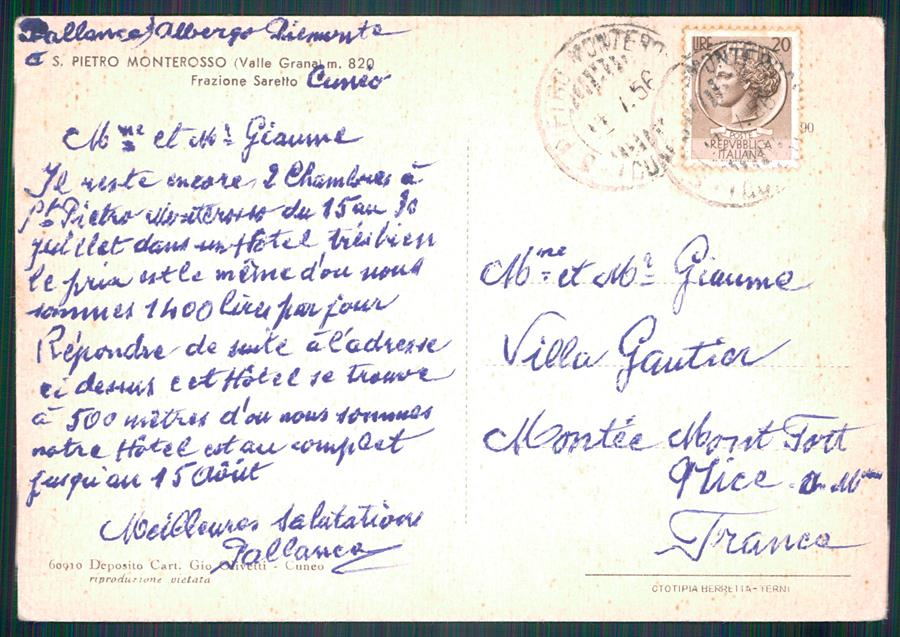 Pallanca, Albergo Piemonte
à S. PIETRO MONTEROSSO (Valle Grana) m. 820
Frazione Saretto Cuneo
Mme et Mr Giaume
Il reste encore 2 Chambres à
St Pietro Monterosso du 15 au 30
juillet dans un Hotel très bien
le prix est le même d'ou nous
sommes 1400 lires par jour
Répondre de suite à l'adresse
ci dessus cet Hôtel se trouve
à 500 mètres d'ou nous sommes
notre Hôtel est au complet
jusqu'au 15 Aôut
Meilleures Salutations
Pallanca
60910 Deposito Cart. Gio Olivetti - Cuneo
riproduzione vietata
LIRE 20
POSTE
REPVBBLICA
ITALIANA
90
Mme et Mr Giaume
Villa Gautier
Montée Mont Fort
Nice
France
CTOTIPIA BERRETTA - TERNI